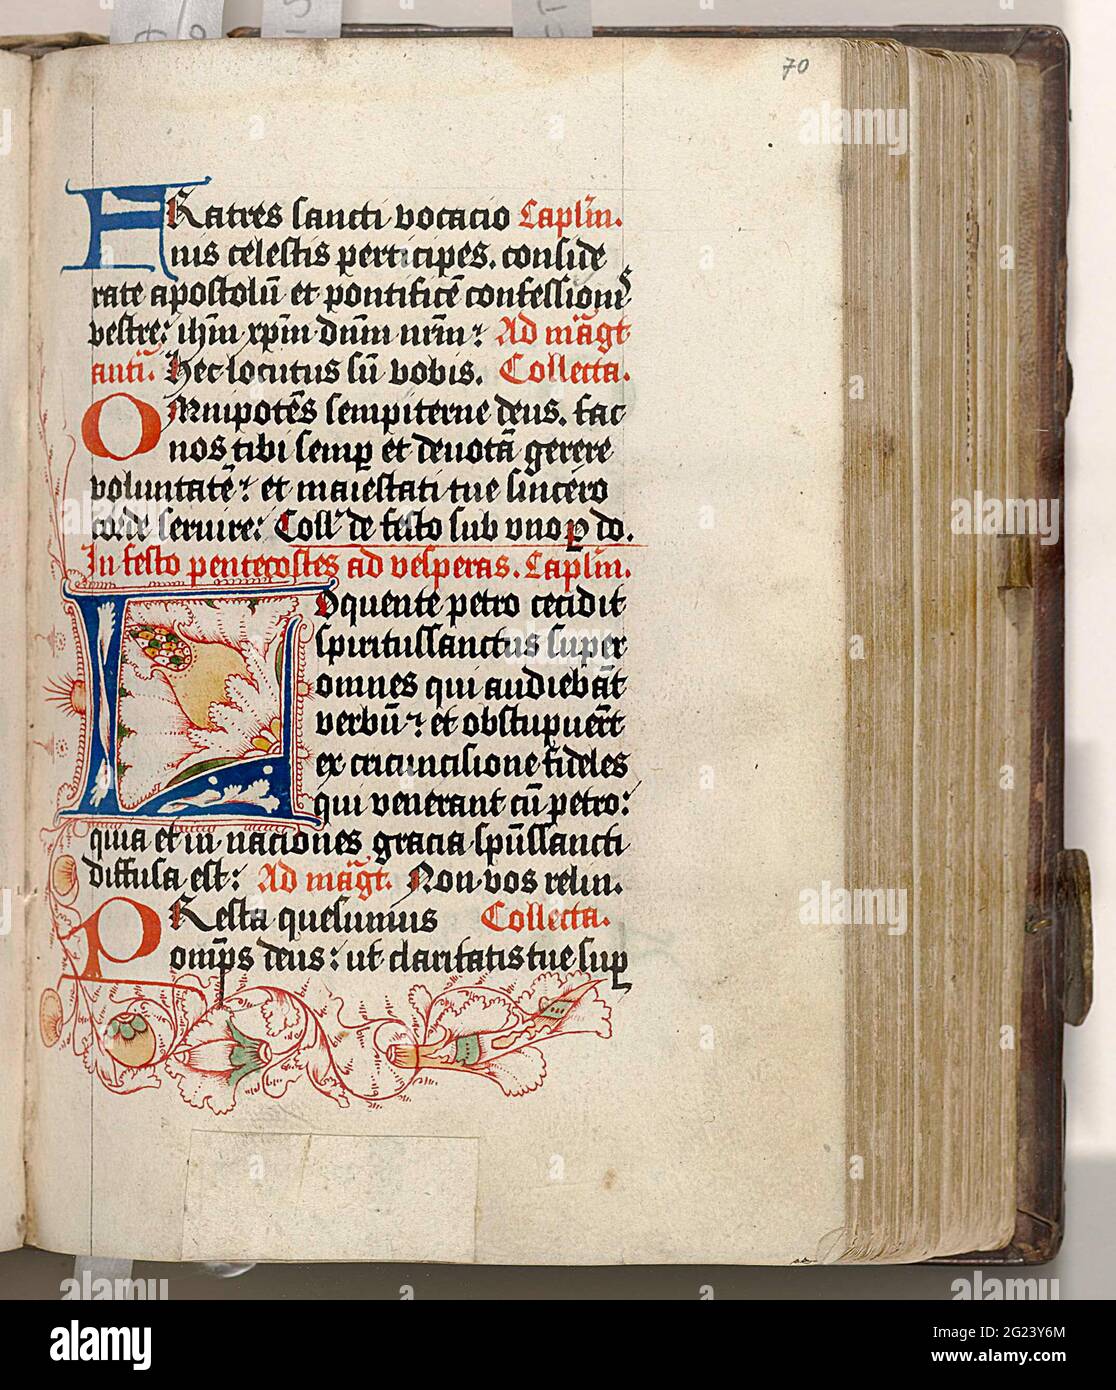 70
FRatres sancti vocacio Caplm̄.
nis celestis perticipes. conside
rate apostolū et pontificē confessionis
vestre: ihm̄ xpm̄ dnm̄ nrm̄: Ad māgt
anti. Hec locutus sū vobis. Collecta.
OMnipotēs sempiterne deus. fac
nos tibi semp et deuotā gerere
voluntatē: et maiestati tue sincero
corde seruire: Coll' de festo sub vno p do.
In festo pentecostes ad vesperas. Caplm̄.
LOquente petro cecidit
spiritussanctus super
omnes qui audiebāt
verbū: et obstupuerūt
ex circuncisione fideles
qui venerant cū petro:
quia et in naciones gracia spūssancti
diffusa est: Ad māgt. Non vos relin.
PResta quesumus Collecta.
omps deus: ut claritatis tue sup
alamy
Image ID: 2G23Y6M
www.alamy.com